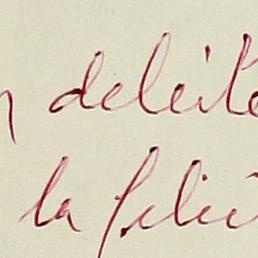 deleite
la felici